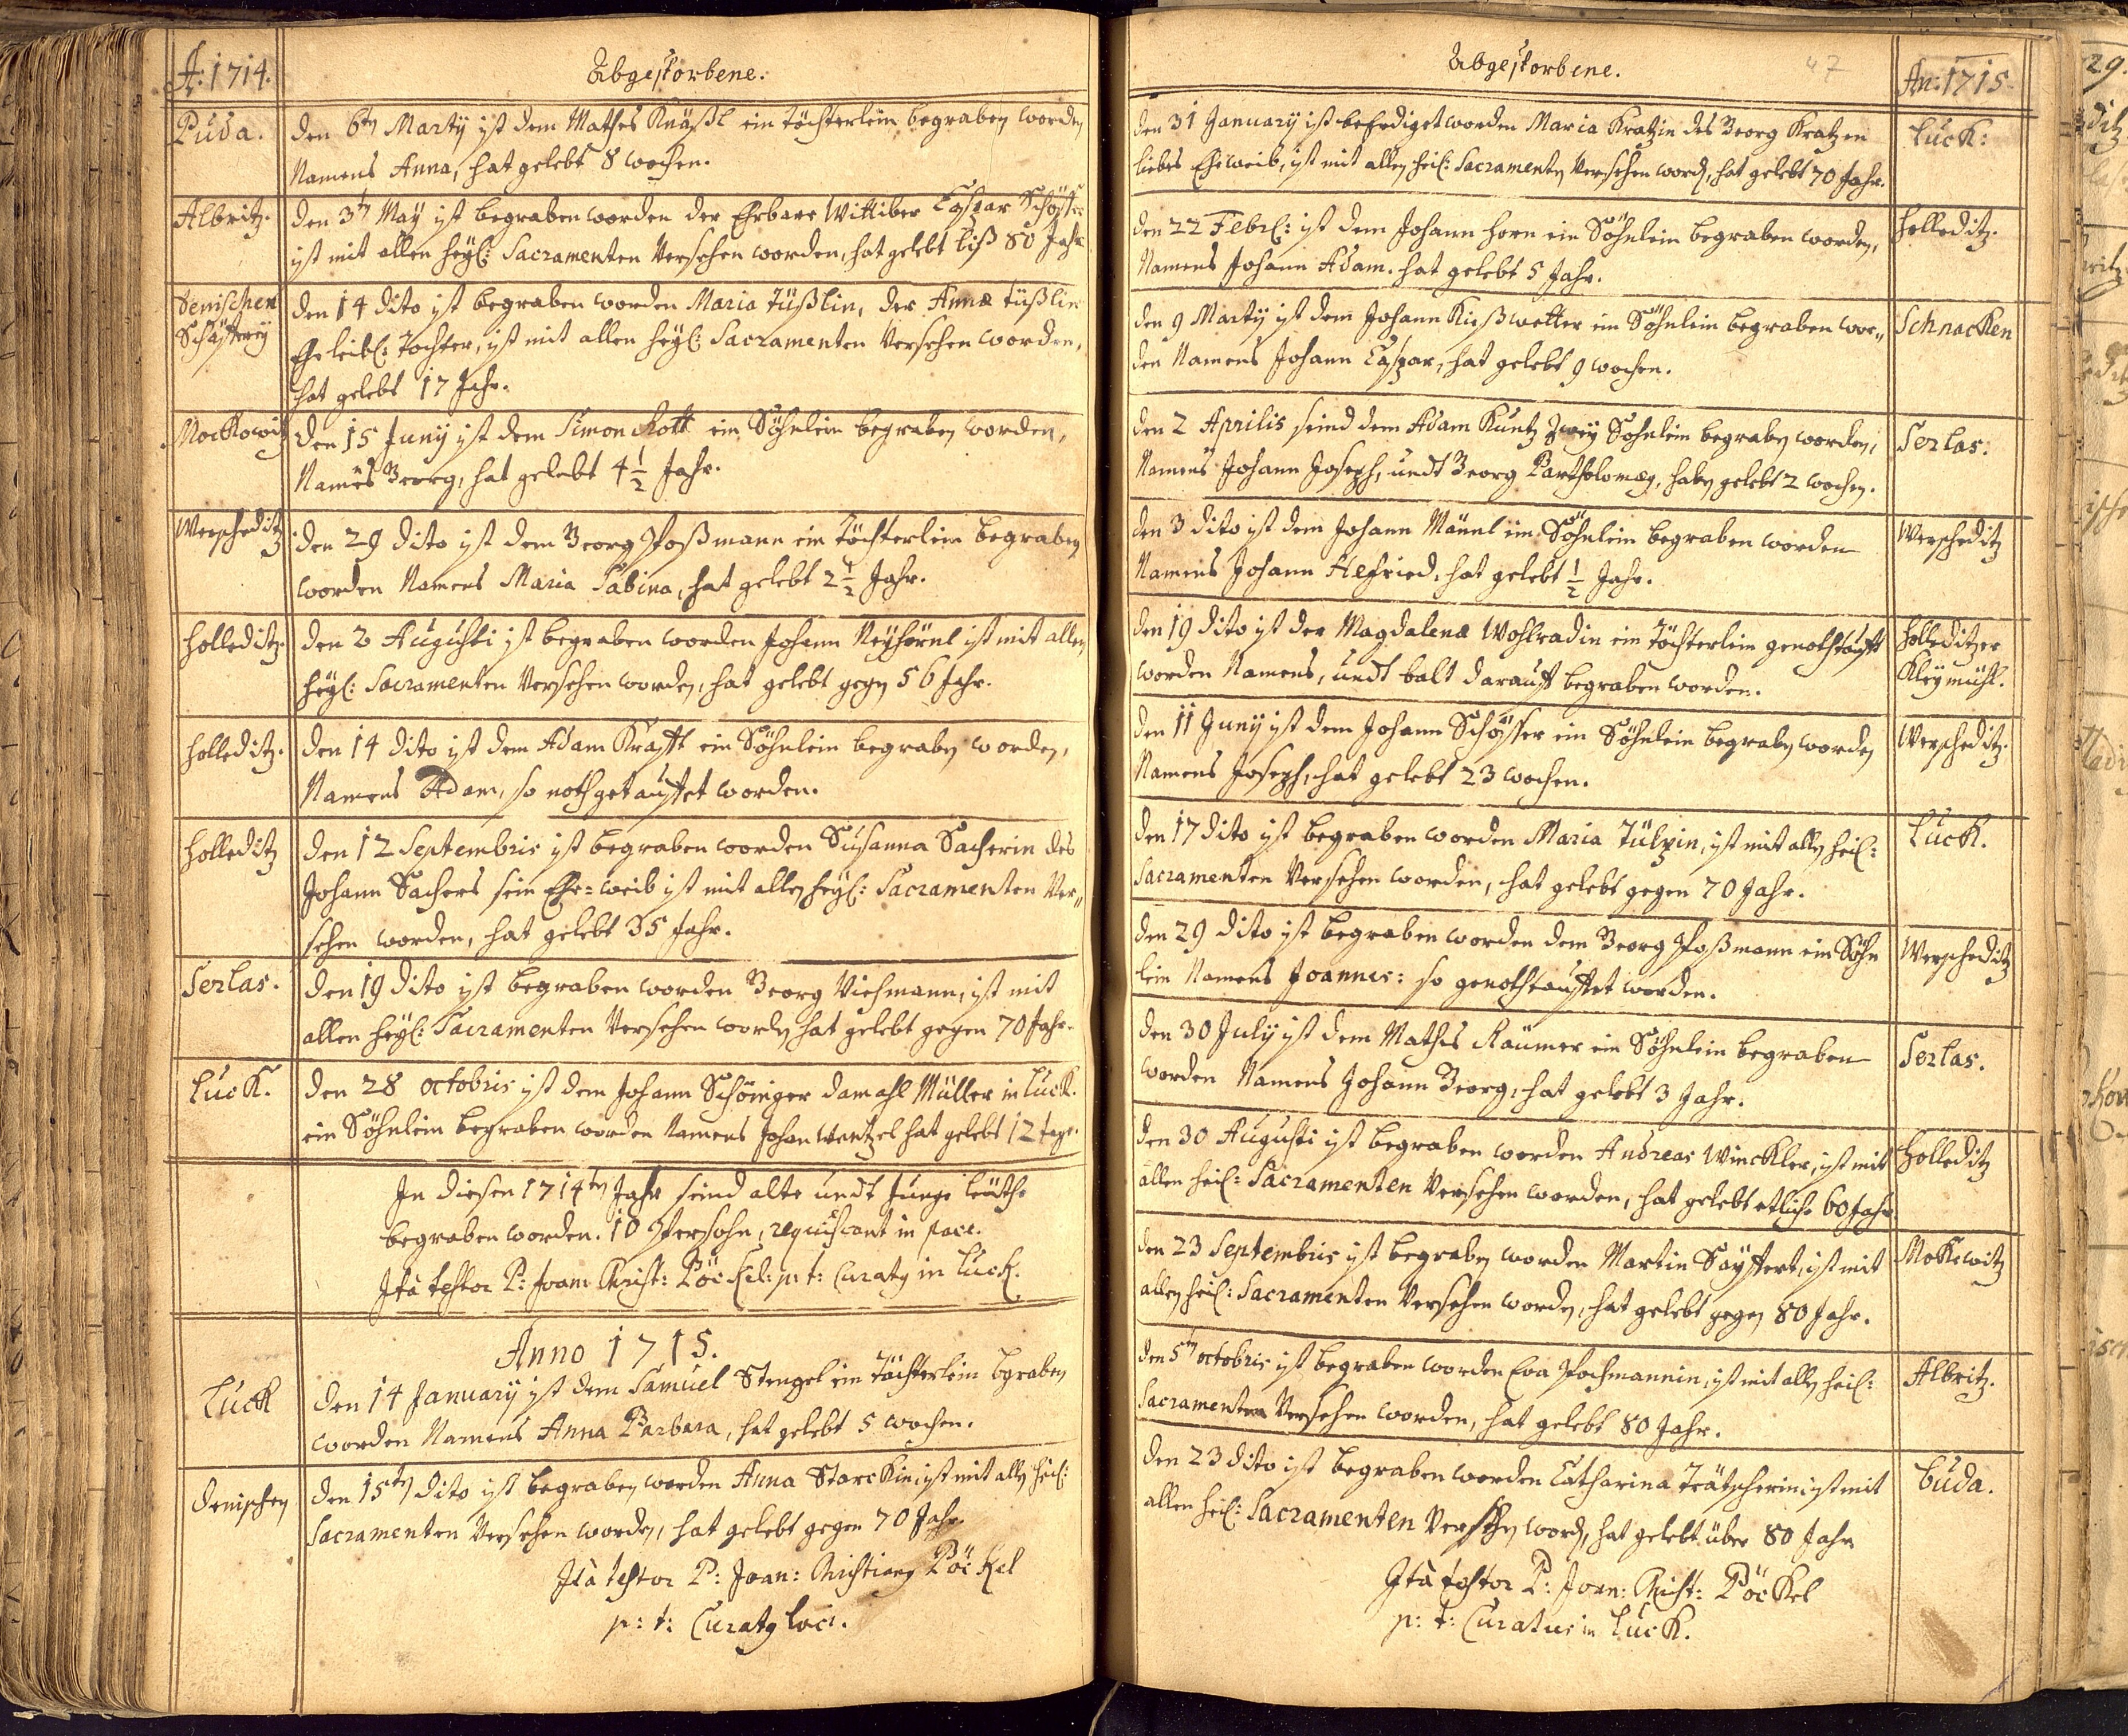 A: 1714.
Abgestorbene.
Puda.
den 6ten Martij ist dem Mathes Knäßl ein töchterlein begraben worden
Namens Anna, hat gelebt 8 wochen.
Albritz.
den 3ten May ist begraben worden der Ehrbare Wittiber Caspar
ist mit allen heyl: Sacramenten Versehen worden, hat gelebt biß 80 Jahr
Denischen
Schäfferey
den 14 dito ist begraben worden Maria Tüßlin, der Annæ tüßlin
Eheleibl: Tochter, ist mit allen heyl: Sacramenten Versehen worden,
hat gelebt 17 Jahr.
Mockowitz
den 15 Junij ist dem Simon Rott ein Söhnlein begraben worden,
Namens Georg, hat gelebt 4 1/2 Jahr.
Werscheditz
den 29 dito ist dem Georg Poßmann ein Töchterlein begraben
worden Namens Maria Sabina, hat gelebt 2 1/2 Jahr.
Holleditz.
den 2 Augusti ist begraben worden Johann ist mit allen
heyl: Sacramenten Versehen worden, hat gelebt gegen 56 Jahr.
Holleditz.
den 14 dito ist dem Adam Krafft ein Söhnlein begraben worden,
Namens Adam, so nothgetauffet worden.
Holleditz
den 12 Septembris ist begraben worden Susanna Sacherin des
Johann Sachers sein Ehe=weib ist mit allen heyl: Sacramenten Ver„
sehen worden, hat gelebt 35 Jahr.
Serlas.
den 19 dito ist begraben worden Georg Viehmann, ist mit
allen heyl: Sacramenten Versehen worden hat gelebt gegen 70 Jahr.
Luck.
den 28 octobris ist dem Johann Schöninger damahl Müller in Luck.
ein Söhnlein begraben worden Namens Johan Wentzel hat gelebt 12 tage.
In diesen 1714ten Jahr seind alte undt Junge leüthe
begraben worden. 10 Persohn, requiscant in pace.
Ità testor P: Joan: Christ: Böckel: p: t: Curatg in Luck.
Anno 1715.
Luck
den 14 January ist dem Samuel Stengel ein Töchterlein bgraben
worden Namens Anna Barbara, hat gelebt 5 wochen.
Denischen
den 15ten dito ist begraben worden Anna Starckin, ist mit allen heil:
Sacramenten Versehen worden, hat gelebt gegen 70 Jahr.
Ità testor P: Joan: Christiang Böckel
p: t: Curatg loci.
Abgestorbene.
47
An: 1715.
den 31 January ist befediget worden Maria Kratzin des Georg Kratzen
liebes Eheweib, ist mit allen heil: Sacramenten Versehen word, hat gelebt 70 Jahr.
Luck:
den 22 Febrl: ist dem Johann Horn ein Söhnlein begraben worden,
Namens Johann Adam. hat gelebt 5 Jahr.
Holleditz.
den 9 Martij ist dem Johann Kießwetter ein Söhnlein begraben wor„
den Namens Johann Caspar, hat gelebt 9 wochen.
Schnacken
den 2 Aprilis seind dem Adam Kuntz Zweij Sohnlein begraben worden,
Namens Johann Joseph, undt Georg Bartholomæg, haben gelebt 2 wochen.
Serlas:
den 3 dito ist dem Johann Männl ein Söhnlein begraben worden
Namens Johann, hat gelebt 1/2 Jahr.
Werscheditz
den 19 dito ist der Magdalenæ Wohlradin ein Töchterlein genothtaufft
worden Namens, undt balt darauff begraben worden.
Holleditzer
Kleymühl.
den 11 Junij ist dem Johann ein Söhnlein begraben worden
Namens Joseph, hat gelebt 23 wochen.
Werscheditz.
den 17 dito ist begraben worden Maria Tülpin, ist mit allen heil:
Sacramenten Versehen worden, hat gelebt gegen 70 Jahr.
Luck.
den 29 dito ist begraben worden dem Georg Poßmann ein Söhn
lein Namens Joannes: so genothtauffet worden.
Werscheditz
den 30 July ist dem Mathes Räumer ein Söhnlein begraben
worden Namens Johann Georg, hat gelebt 3 Jahr.
Serlas.
den 30 Augusti ist begraben worden Andreas Winckler, ist mit
allen heil: Sacramenten Versehen worden, hat gelebt etliche 60 Jahr.
Holleditz
den 23 Septembris ist begraben worden Martin Sayffert, ist mit
allen heil: Sacramenten Versehen worden, hat gelebt gegen 80 Jahr.
Mokowitz
den 5ten octobris ist begraben worden Eva Pochmannin, ist mit allen heil:
Sacramenten Versehen worden, hat gelebt 80 Jahr.
Albritz.
den 23 dito ist begraben worden Catharina Trätscherin, ist mit
allen heil: Sacramenten Versehen word, hat gelebt über 80 Jahr.
buda.
Ità testor P: Joan: Christ: Böckel
p: t: Curatus in Luck.